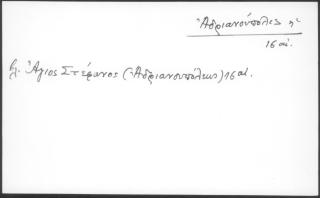 Ἀδριανούπολις
16 αἰ.
βλ. Ἅγιος Στέφανος (Ἀδριανουπόλεως) 16 αἰ.